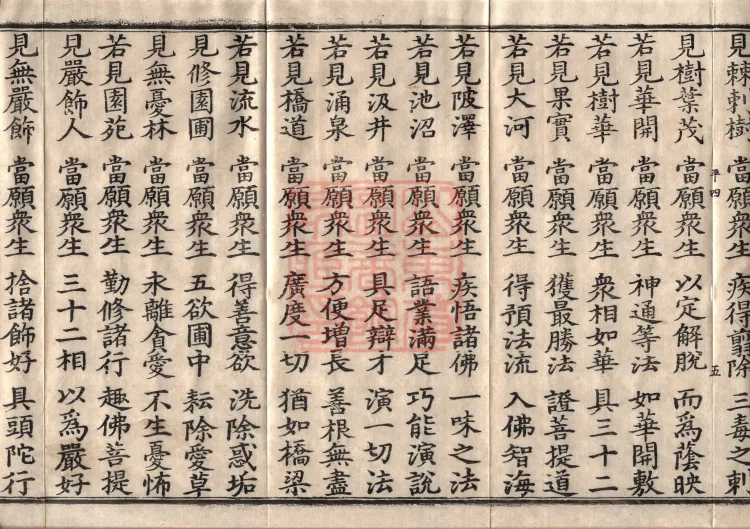 見棘刺樹 當願衆生 疾得翦除 三毒之刺
見樹葉茂 當願衆生 以定解脫 而爲蔭映
若見華開 當願衆生 神通等法 如華開敷
若見樹華 當願衆生 衆相如華 具三十二
若見果實 當願衆生 獲最勝法 證菩提道
若見大河 當願衆生 得預法流 入佛智海
若見陂澤 當願衆生 疾悟諸佛 一味之法
若見池沼 當願衆生 語業滿足 巧能演說
若見汲井 當願衆生 具足辯才 演一切法
若見涌泉 當願衆生 方便增長 善根無盡
若見橋道 當願衆生 廣度一切 猶如橋梁
若見流水 當願衆生 得善意欲 洗除惑垢
見修園圃 當願衆生 五欲圃中 耘除愛草
見無憂林 當願衆生 永離貪愛 不生憂怖
若見園苑 當願衆生 勤修諸行 趣佛菩提
見嚴飾人 當願衆生 三十二相 以爲嚴好
見無嚴飾 當願衆生 捨諸飾好 具頭陀行
平四
五